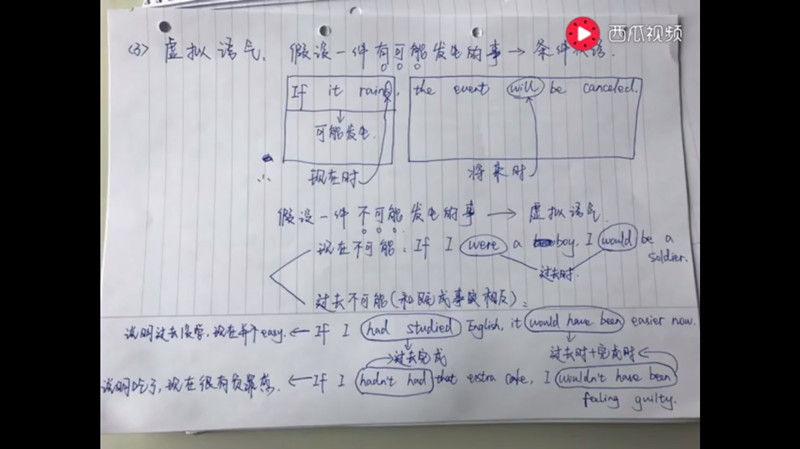 西瓜视频
(3) 虚拟语气. 假设一件有可能发生的事 → 条件状语.
If it rains, the event will be canceled.
可能发生.
现在时 将来时
假设一件不可能发生的事 → 虚拟语气.
现在不可能: If I were a boy, I would be a soldier.
过去时.
过去不可能(和既成事实相反):
说明过去没学, 现在并不easy. ← If I had studied English, it would have been easier now.
过去完成 过去时+完成时
说明吃了, 现在很有负罪感. ← If I hadn't had that extra cake, I wouldn't have been feeling guilty.